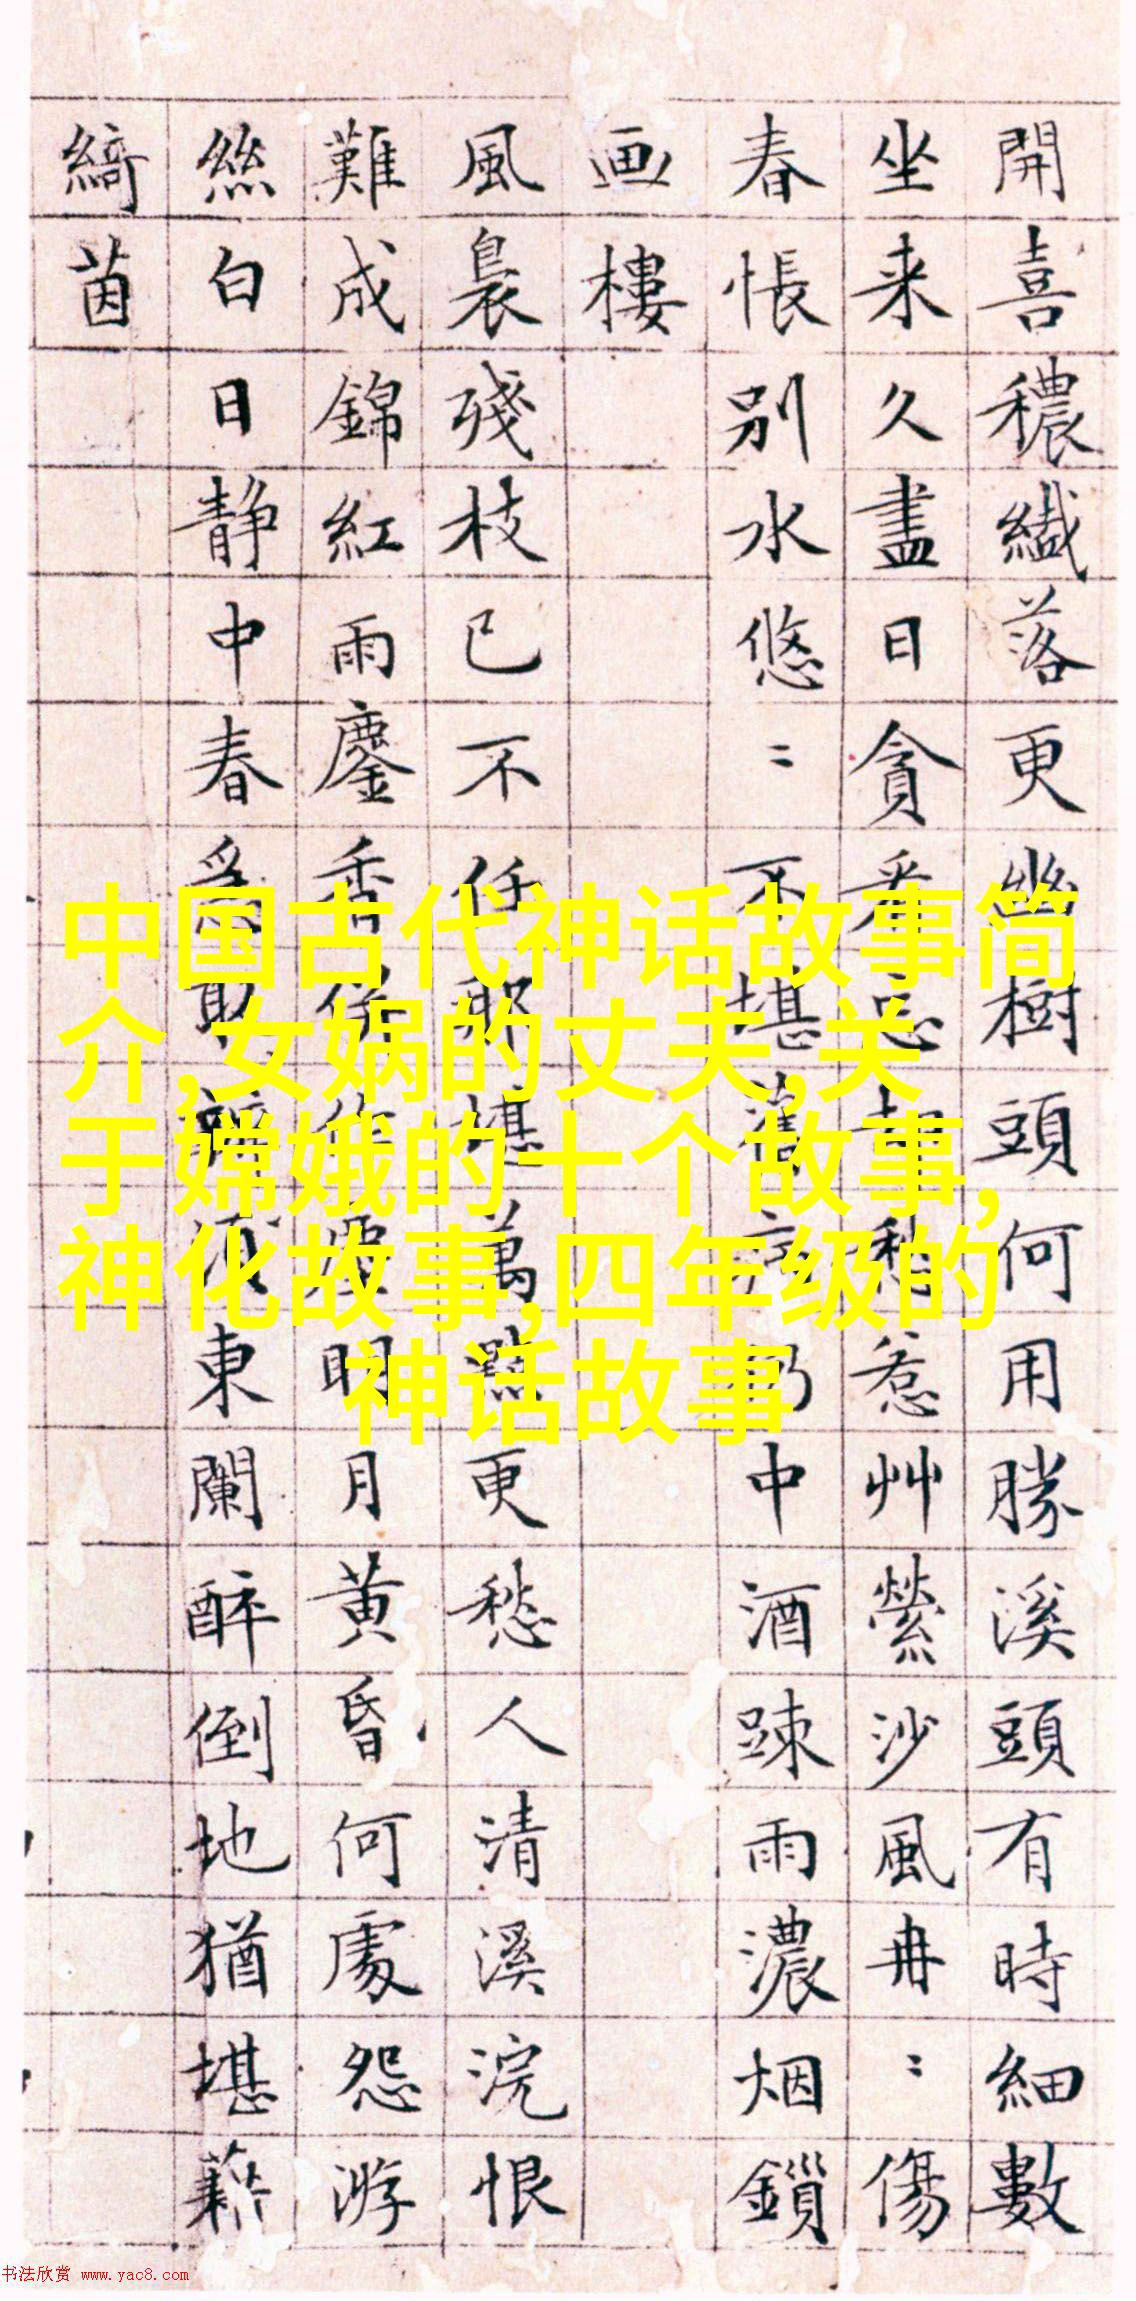 中国古代神话故事简
介,女娲的丈夫,关
于嫦娥的十个故事,
神化故事,四年级的
神话故事
開喜穠纎落更幽樹頭何用勝溪頭有時細數
坐来久盡日貪看忘却愁惹艸縈沙風冉〻傷
春悵別水悠〻不堪舊仍中酒踈雨濃烟鎖
画樓
風裊殘枝已不任那堪萬點更愁人清溪浣恨
難成錦紅雨鏖香併作塵明月黄昏何處怨游
絲白日静中春取須東闌醉倒地猶堪藉
綺茵
书法欣赏 www.yac8.com